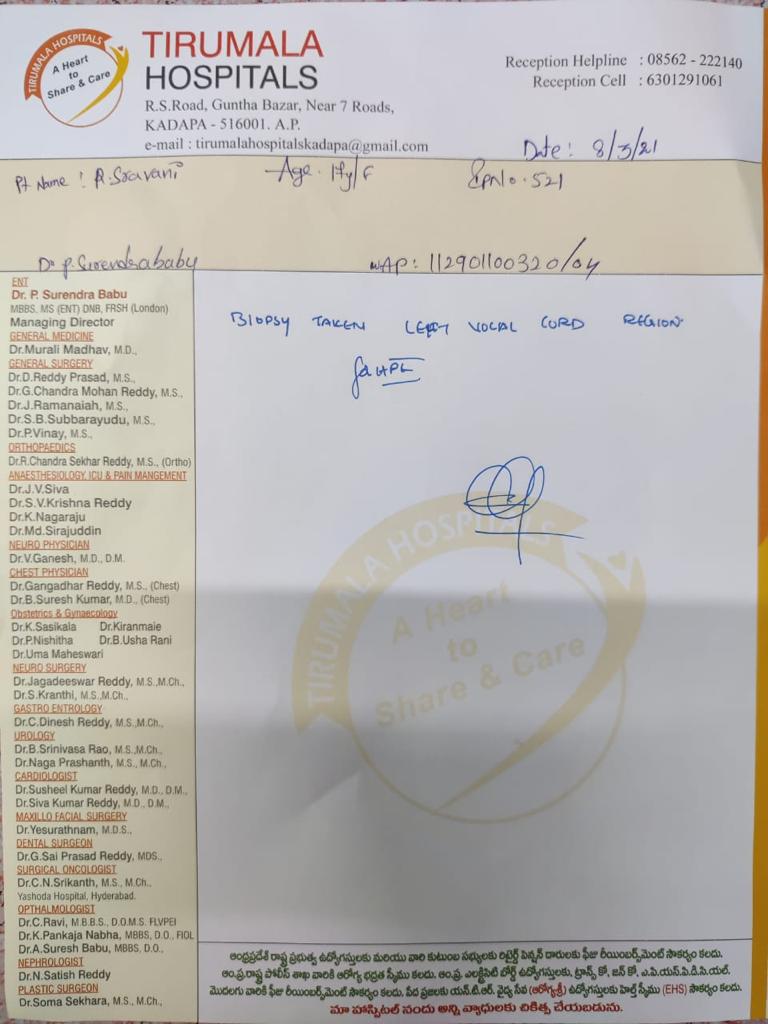 TIRUMALA HOSPITALS
A Heart
to
Share & Care
TIRUMALA
HOSPITALS
R.S.Road, Guntha Bazar, Near 7 Roads,
KADAPA - 516001. A.P.
e-mail : tirumalahospitalskadapa@gmail.com
Reception Helpline : 08562 - 222140
Reception Cell : 6301291061
Date: 8/3/21
Pt Name : R.Sravani Age. 17y/F IPNo. 521
Dr p.Surendrababy MAP: 112901100320/04
ENT
Dr. P. Surendra Babu
MBBS, MS (ENT) DNB, FRSH (London)
Managing Director
GENERAL MEDICINE
Dr.Murali Madhav, M.D.,
GENERAL SURGERY
Dr.D.Reddy Prasad, M.S.,
Dr.G.Chandra Mohan Reddy, M.S.,
Dr.J.Ramanaiah, M.S.,
Dr.S.B.Subbarayudu, M.S.,
Dr.P.Vinay, M.S.,
ORTHOPAEDICS
Dr.R.Chandra Sekhar Reddy, M.S., (Ortho)
ANAESTHESIOLOGY, ICU & PAIN MANGEMENT
Dr.J.V.Siva
Dr.S.V.Krishna Reddy
Dr.K.Nagaraju
Dr.Md.Sirajuddin
NEURO PHYSICIAN
Dr.V.Ganesh, M.D., D.M.
CHEST PHYSICIAN
Dr.Gangadhar Reddy, M.S., (Chest)
Dr.B.Suresh Kumar, M.D., (Chest)
Obstetrics & Gynaecology
Dr.K.Sasikala Dr.Kiranmaie
Dr.P.Nishitha Dr.B.Usha Rani
Dr.Uma Maheswari
NEURO SURGERY
Dr.Jagadeeswar Reddy, M.S.,M.Ch.,
Dr.S.Kranthi, M.S.,M.Ch.,
GASTRO ENTROLOGY
Dr.C.Dinesh Reddy, M.S.,M.Ch.,
UROLOGY
Dr.B.Srinivasa Rao, M.S.,M.Ch.,
Dr.Naga Prashanth, M.S., M.Ch.,
CARDIOLOGIST
Dr.Susheel Kumar Reddy, M.D., D.M.,
Dr.Siva Kumar Reddy, M.D., D.M.,
MAXILLO FACIAL SURGERY
Dr.Yesurathnam, M.D.S.,
DENTAL SURGEON
Dr.G.Sai Prasad Reddy, MDS.,
SURGICAL ONCOLOGIST
Dr.C.N.Srikanth, M.S., M.Ch.,
Yashoda Hospital, Hyderabad.
OPTHALMOLOGIST
Dr.C.Ravi, M.B.B.S., D.O.M.S. FLVPEI
Dr.K.Pankaja Nabha, MBBS, D.O., FIOL
Dr.A.Suresh Babu, MBBS, D.O.,
NEPHROLOGIST
Dr.N.Satish Reddy
PLASTIC SURGEON
Dr.Soma Sekhara, M.S., M.Ch.,
BIOPSY TAKEN LEFT VOCAL CORD REGION
for HPE
TIRUMALA HOSPITALS
A Heart
to
Share & Care
ఆంధ్రప్రదేశ్ రాష్ట్ర ప్రభుత్వ ఉద్యోగస్తులకు మరియు వారి కుటుంబ సభ్యులకు రిటైర్డ్ పెన్షన్ దారులకు ఫీజు రీయింబర్స్‌మెంట్ సౌకర్యం కలదు.
ఆం.ప్ర.రాష్ట్ర పోలీస్ శాఖ వారికి ఆరోగ్య భద్రత స్కీము కలదు. ఆం.ప్ర. ఎలక్ట్రిసిటి బోర్డ్ ఉద్యోగస్తులకు, ట్రాన్స్ కో, జన్ కో, ఎ.పి.యస్.పి.డి.సి.యల్.
మొదలగు వారికి ఫీజు రీయింబర్స్‌మెంట్ సౌకర్యం కలదు. పేద ప్రజలకు యన్.టి.ఆర్. వైద్య సేవ (ఆరోగ్యశ్రీ) ఉద్యోగస్తులకు హెల్త్ స్కీము (EHS) సౌకర్యం కలదు.
మా హాస్పిటల్ నందు అన్ని వ్యాధులకు చికిత్స చేయబడును.